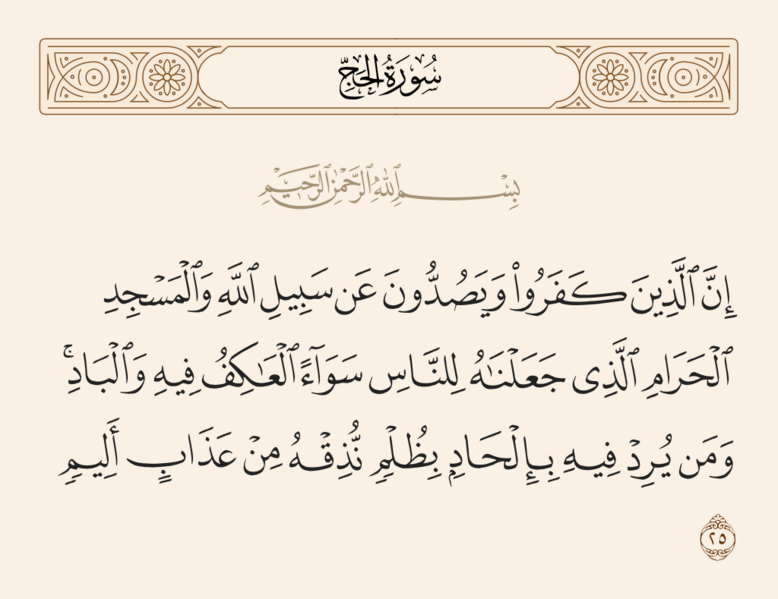 سُورَةُ الحَجِّ
بِسْمِ ٱللَّهِ ٱلرَّحْمَٰنِ ٱلرَّحِيمِ
إِنَّ ٱلَّذِينَ كَفَرُوا۟ وَيَصُدُّونَ عَن سَبِيلِ ٱللَّهِ وَٱلْمَسْجِدِ
ٱلْحَرَامِ ٱلَّذِى جَعَلْنَٰهُ لِلنَّاسِ سَوَآءً ٱلْعَٰكِفُ فِيهِ وَٱلْبَادِ ۚ
وَمَن يُرِدْ فِيهِ بِإِلْحَادٍۭ بِظُلْمٍۢ نُّذِقْهُ مِنْ عَذَابٍ أَلِيمٍۢ
٢٥